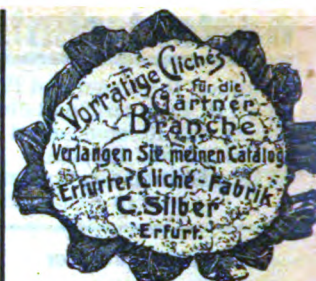 Vorrätige Cliches
für die
Gärtner
Branche.
Verlangen Sie meinen Catalog
Erfurter Cliché-Fabrik
C. Silber
Erfurt.